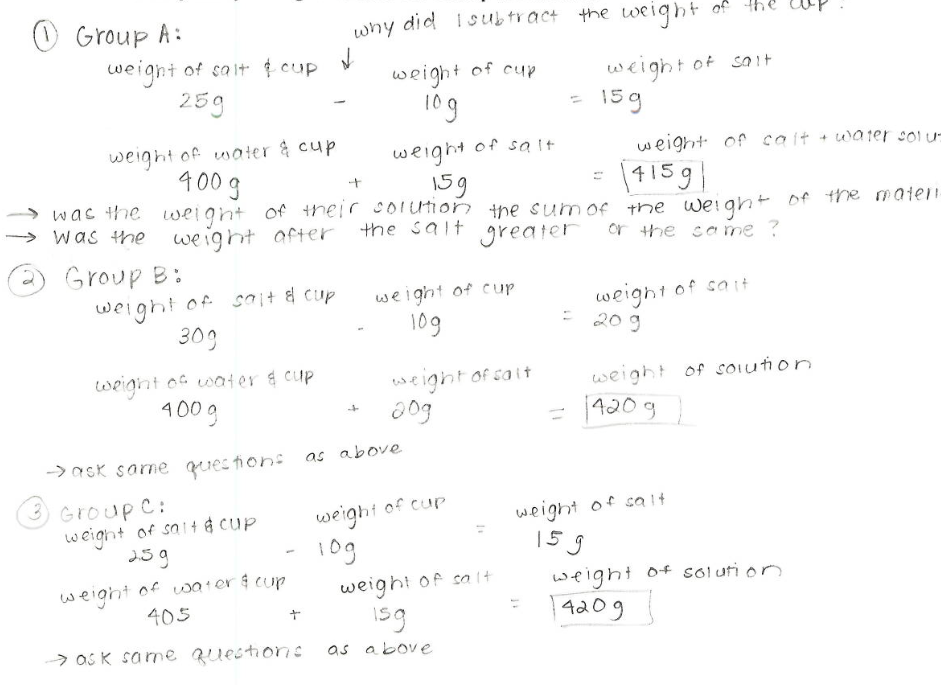 why did I subtract the weight of the cup?
① Group A:
weight of salt & cup ↓ weight of cup weight of salt
25g - 10g = 15g
weight of water & cup weight of salt weight of salt + water solu
400g + 15g = 415g
→ was the weight of their solution the sum of the weight of the materi
→ was the weight after the salt greater or the same?
② Group B:
weight of salt & cup weight of cup weight of salt
30g - 10g = 20g
weight of water & cup weight of salt weight of solution
400g + 20g = 420g
→ ask same questions as above
③ Group C:
weight of salt & cup weight of cup = weight of salt
25g - 10g 15g
weight of water & cup weight of salt weight of solution
405 + 15g = 420g
→ ask same questions as above